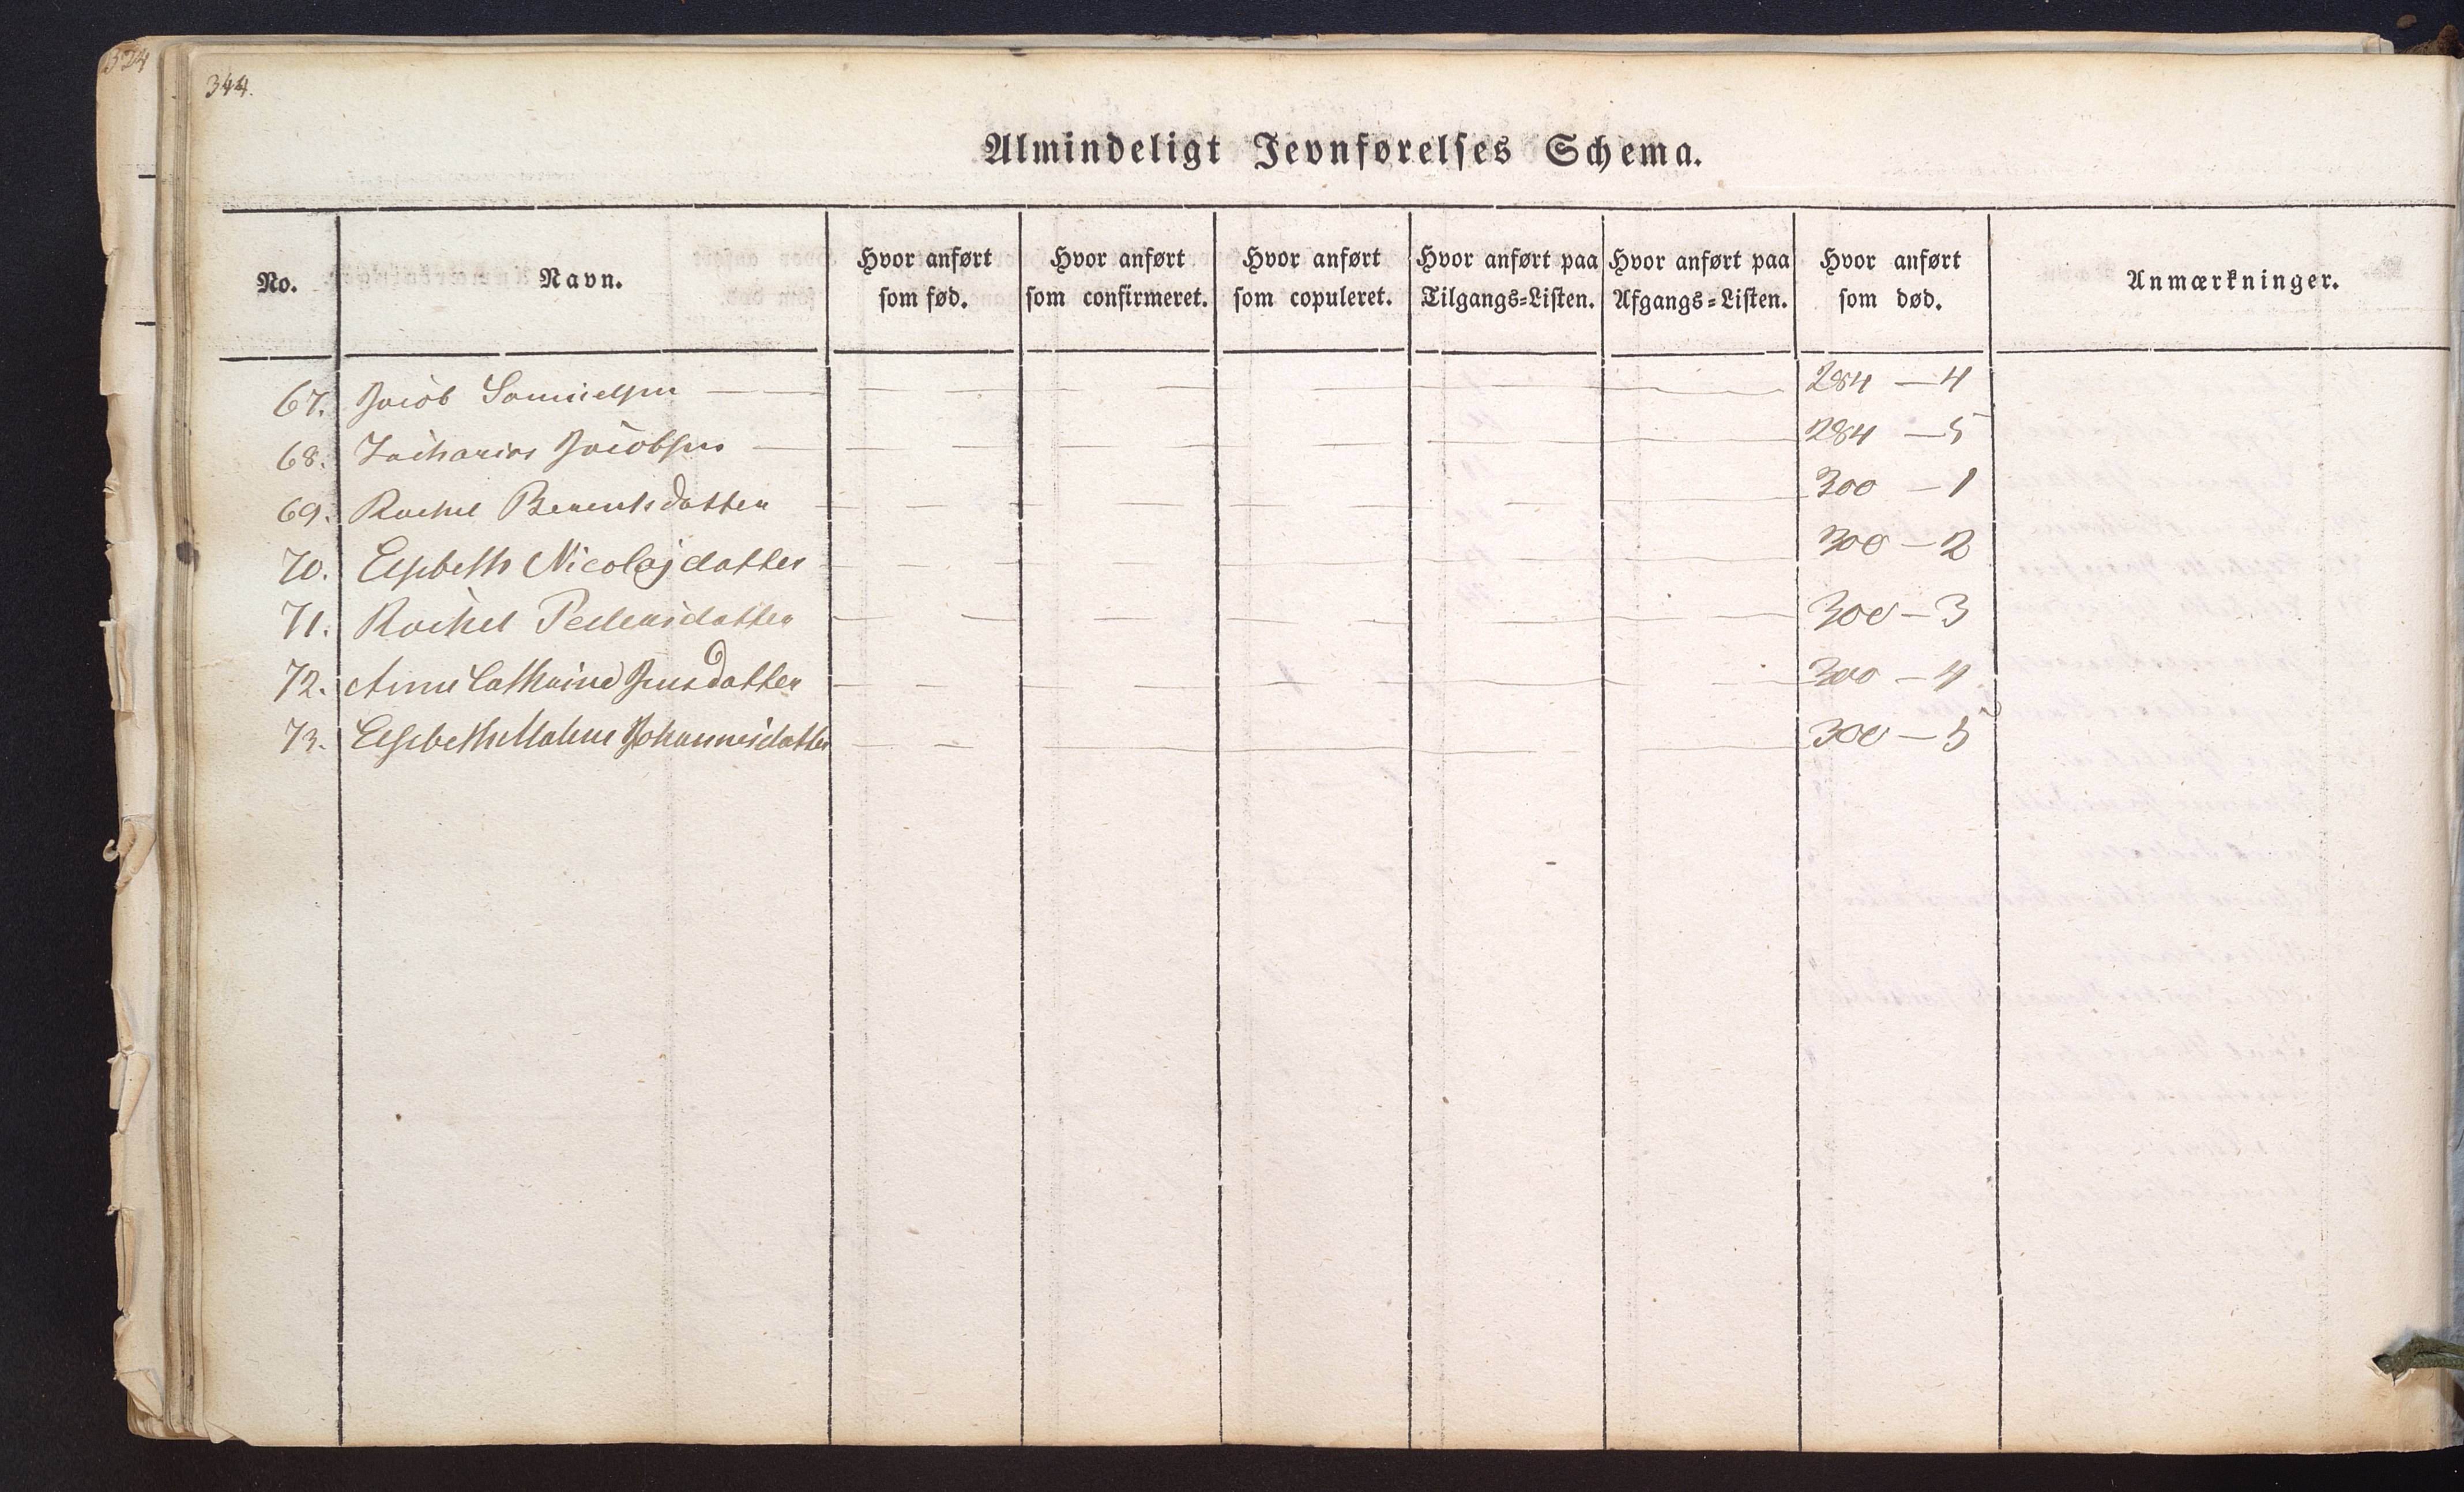 324
344.
Almindeligt Jevnførelses Schema.
No.
Navn.
Hvor anført som fød.
Hvor anført som confirmeret.
Hvor anført som copuleret.
Hvor anført paa Tilgangs=Listen.
Hvor anført paa Afgangs=Listen.
Hvor anført som død.
Anmærkninger.
67. Jacob Samuelsen — 284 — 4
68. Zacharias Jacobsen — 284 — 5
69. Rachel Berentsdatter — 300 — 1
70. Elsebeth Nicolajdatter — 300 — 2
71. Rachel Pedersdatter — 300 — 3
72. Anne Cathrine Jensdatter — 300 — 4
73. Elsebeth Malene Johannesdatter — 300 — 5